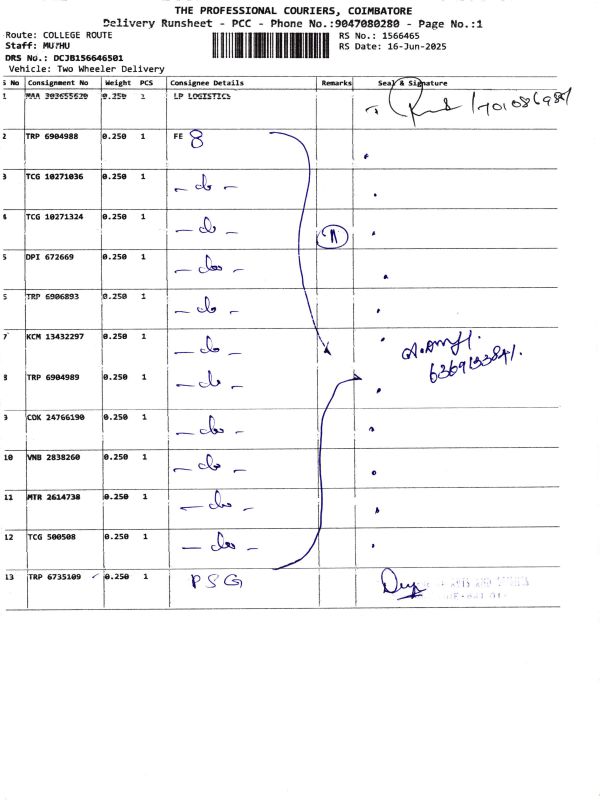 THE PROFESSIONAL COURIERS, COIMBATORE
Delivery Runsheet - PCC - Phone No.:9047080280 - Page No.:1
Route: COLLEGE ROUTE RS No.: 1566465
Staff: MUTHU RS Date: 16-Jun-2025
DRS No.: DCJB156646501
Vehicle: Two Wheeler Delivery
S No Consignment No Weight PCS Consignee Details Remarks Seal & Signature
1 MAA 303655620 0.250 1 LP LOGISTICS
2 TRP 6904988 0.250 1 FE 8
3 TCG 10271036 0.250 1 - do -
4 TCG 10271324 0.250 1 - do - 11
5 DPI 672669 0.250 1 - do -
6 TRP 6906893 0.250 1 - do -
7 KCM 13432297 0.250 1 - do -
8 TRP 6904989 0.250 1 - do -
9 COK 24766190 0.250 1 - do -
10 VNB 2838260 0.250 1 - do -
11 MTR 2614738 0.250 1 - do -
12 TCG 500508 0.250 1 - do -
13 TRP 6735109 0.250 1 PSG